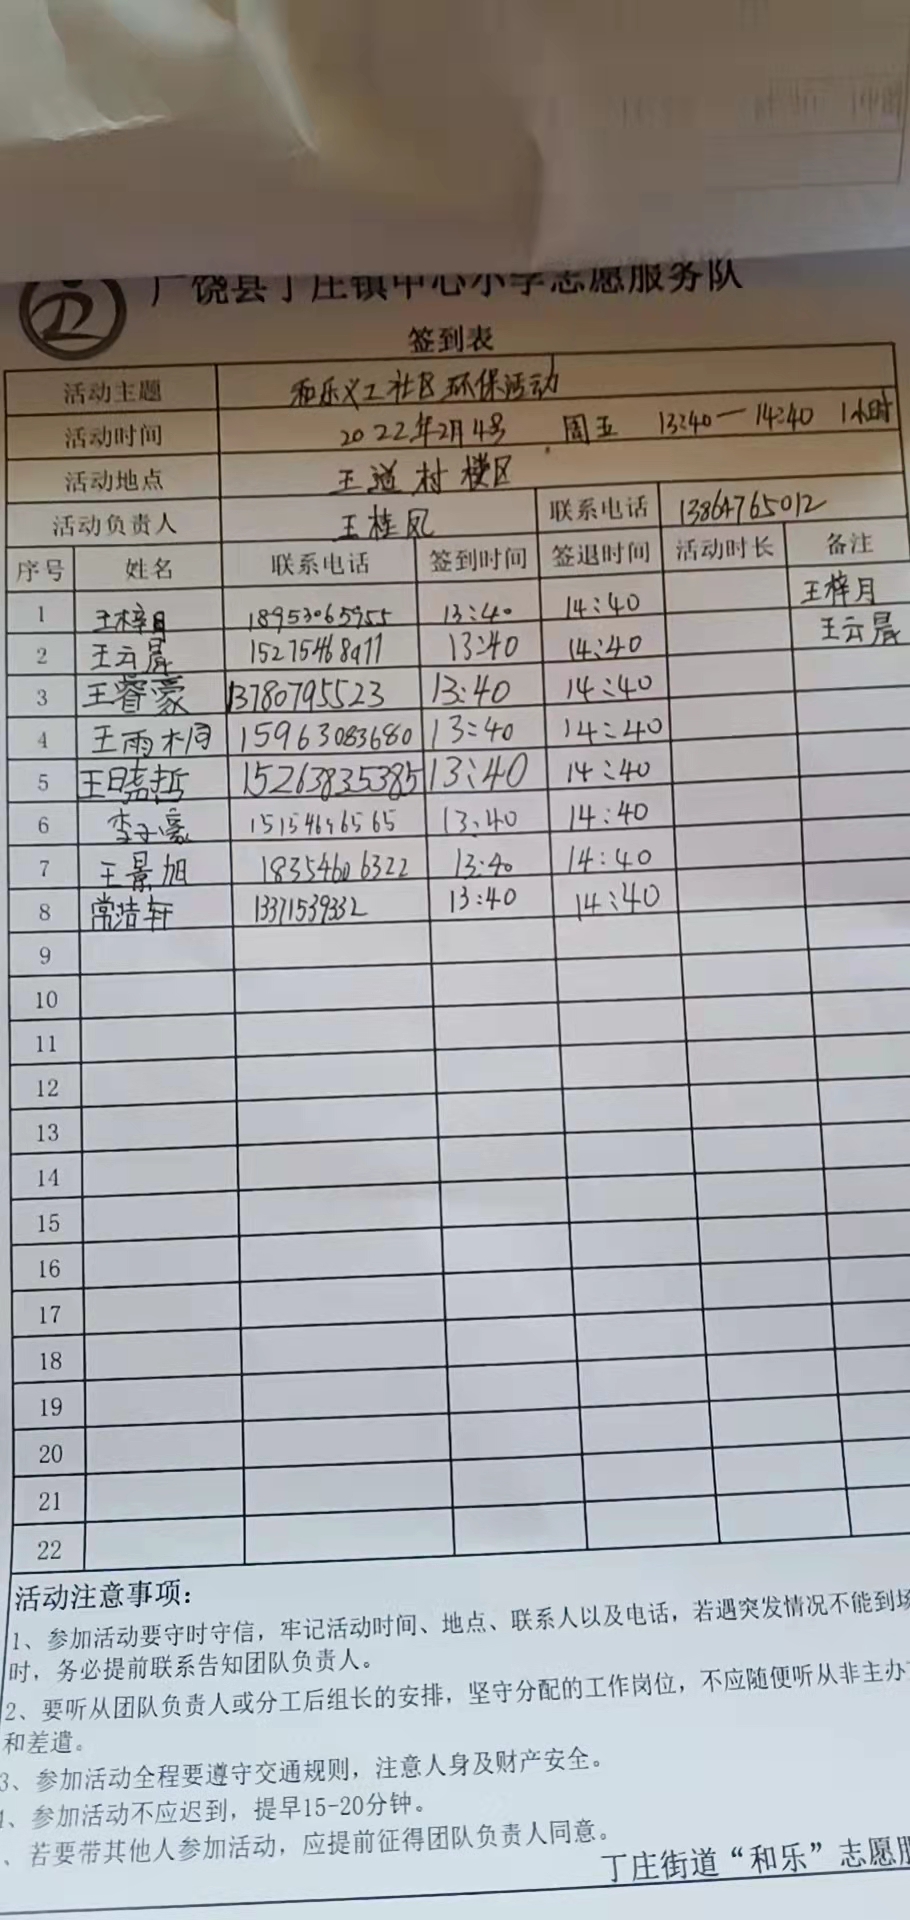 广饶县丁庄镇中心小学志愿服务队
签到表
活动主题 和乐义工社区环保活动
活动时间 2022年2月4号 周五 13:40—14:40 1小时
活动地点 王道村楼区
活动负责人 王桂凤 联系电话 13864765012
序号 姓名 联系电话 签到时间 签退时间 活动时长 备注
1 王梓月 18953065955 13:40 14:40 王梓月
2 王云晨 15275468977 13:40 14:40 王云晨
3 王睿豪 13780795523 13:40 14:40
4 王雨桐 15963083680 13:40 14:40
5 王晓哲 15263835385 13:40 14:40
6 李子豪 15154696565 13:40 14:40
7 王景旭 18354606322 13:40 14:40
8 常浩轩 13371539332 13:40 14:40
9
10
11
12
13
14
15
16
17
18
19
20
21
22
活动注意事项：
1、参加活动要守时守信，牢记活动时间、地点、联系人以及电话，若遇突发情况不能到场
时，务必提前联系告知团队负责人。
2、要听从团队负责人或分工后组长的安排，坚守分配的工作岗位，不应随便听从非主办
和差遣。
3、参加活动全程要遵守交通规则，注意人身及财产安全。
4、参加活动不应迟到，提早15-20分钟。
、若要带其他人参加活动，应提前征得团队负责人同意。
丁庄街道“和乐”志愿服